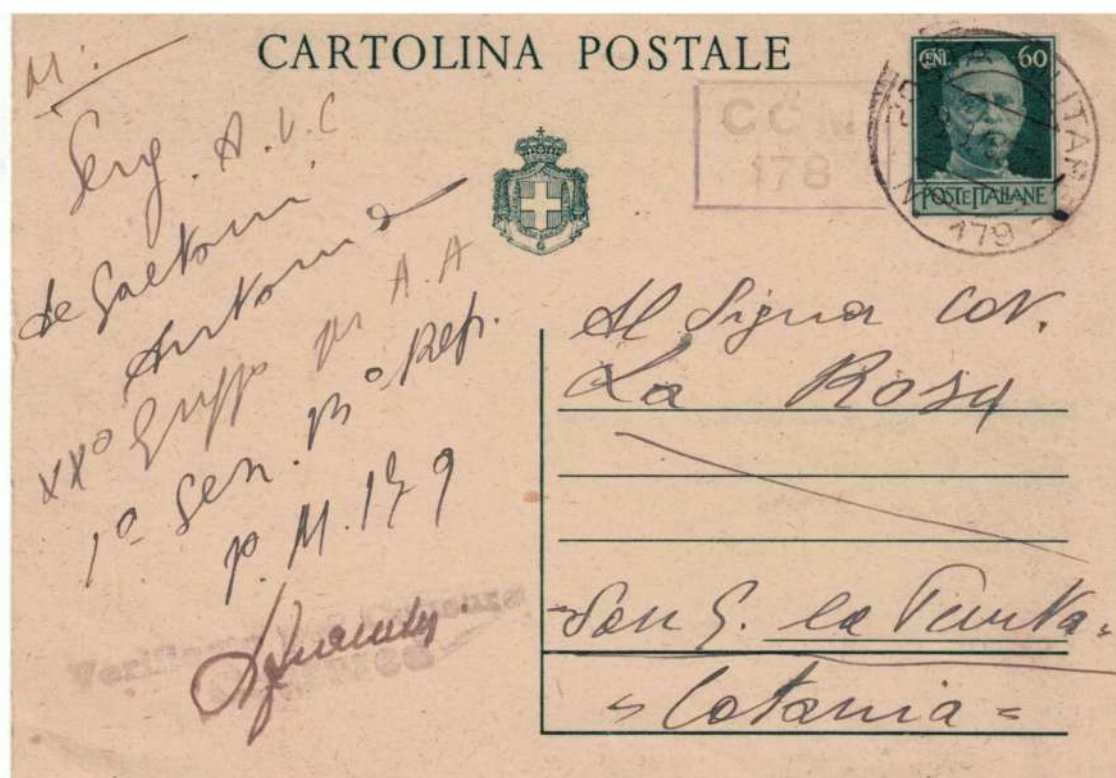 CARTOLINA POSTALE
CENT. 60
POSTE ITALIANE
179
CCM
178
M:
Serg. A.V.C
de Gaetani
Antonino
XX° Gruppo A.A
1a Sez. Rep.
P. M. 179
Verifi
Al Signor Cav.
La Rosa
San G. la Punta
Catania